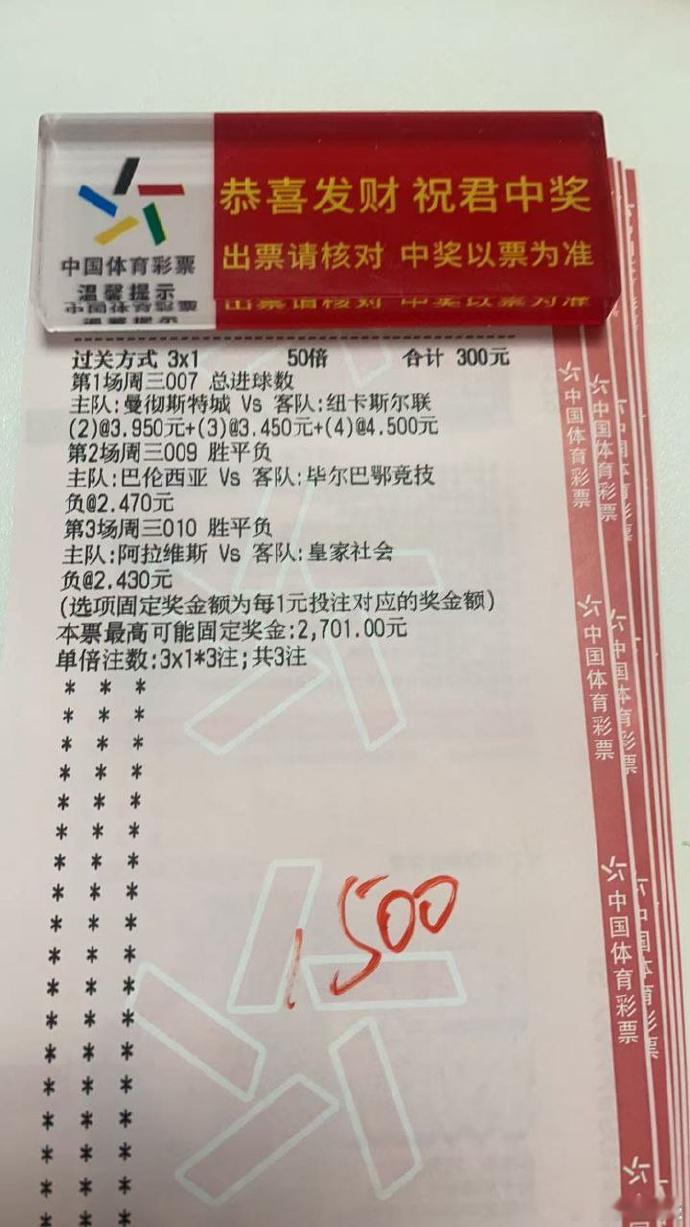 恭喜发财 祝君中奖
出票请核对 中奖以票为准
中国体育彩票
温馨提示
过关方式 3x1 50倍 合计 300元
第1场周三007 总进球数
主队:曼彻斯特城 Vs 客队:纽卡斯尔联
(2)@3.950元+(3)@3.450元+(4)@4.500元
第2场周三009 胜平负
主队:巴伦西亚 Vs 客队:毕尔巴鄂竞技
负@2.470元
第3场周三010 胜平负
主队:阿拉维斯 Vs 客队:皇家社会
负@2.430元
(选项固定奖金额为每1元投注对应的奖金额)
本票最高可能固定奖金:2,701.00元
单倍注数:3x1*3注;共3注
1500
中国体育彩票
中国体育彩票
中国体育彩票
中国体育彩票
中国体育彩票